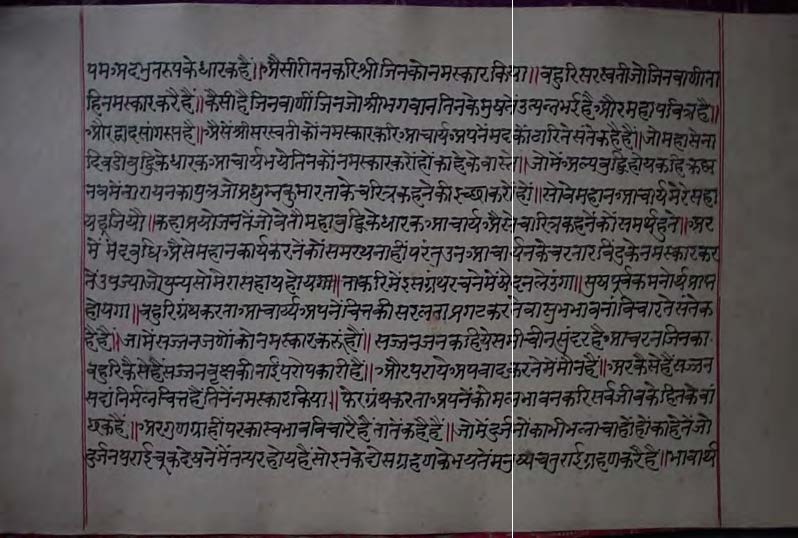 पमअदभुतरूपकेधारकहैं॥अैसीरीतनकरिश्रीजिनकोनमस्कारकिया॥वहुरिसरस्वतीजोजिनवाणीता
हिनमस्कारकरैहैं॥कैसीहैजिनवाणींजिनजोश्रीभगवानतिनकेमुषतेंउत्पन्तभईहैऔरमहापवित्रहै॥
औरद्वादसांगरूपहै॥अैसेंश्रीसरस्वतीकोंनमस्कारकरिआचार्यअपयनेंमदकोंटारितेसंतेकहैहैं॥जोमहासेना
दिवडीवुद्धिकेधारकआचार्यभयेतिनकोंनमस्कारकरोंहोंकाहेकेवास्ते॥जोमेंअल्पवुद्धिहोयकहि
नवमेंनारायनकापुत्रजोप्रद्युम्नकुमारताकेचरित्रकहनेकीइच्छाकरोंहों॥सोवेमहानआचार्यमेरेसहा
यहूजियौ॥कहाप्रयोजनतेंजोवेतौमहावुद्धिकेधारकआचार्यअैसेचारित्रकहनेंकोंसमर्थहुते॥अर
मेंमंदवुधिअैसेमहानकार्यकरनेंकोंसमरथनाहींपरंतुउनआचार्यनकेचरनारविंदकेनमस्कारकर
नेंउपज्याजोपुन्यसोमेरासहायहोयगा॥ताकरिमेंइसग्रंथरचनेमेंषेदनलेउंगा॥सुषपूर्वकमनोर्थप्राप्त
होयगा॥वहुरिग्रंथकरताआचार्य्यअपयनेंचितकीसरलताप्रगटकरतेवासुभभावनांविचारतेसंतेक
हैहैं॥जोमेंसज्जनजणोंकोनमस्कारकरूंहों॥सज्जनजनकहियेसमीचीनसुंदरहैआचरनजिनका
वहुरिकैसेहैंसज्जनवृक्षकीनांईपरोपकारीहैं॥औरपरायेअपवादकरनेमेंमौनहैं॥अरकैसेहैंसज्जन
सदांनिर्मलचितहैंतिनेंनमस्कारकिया॥फेरग्रंथकरताअपयनेंकोमलभावनकरिसर्वजीवकेहितकेवां
छकहैं॥अरगुणग्राहींपरकास्वभावविचारैहैंतातेंकहैहैं॥जोमेंदुर्जनोंकाभीभलाचाहोंहोंकाहेतेंजो
दुर्जनपराईचूकदेषनेमेंतत्परहोयहैंसोइनकेदोसग्रहणकेभयतेंमनुष्यचतुराईग्रहणकरैहैं॥भावार्थ